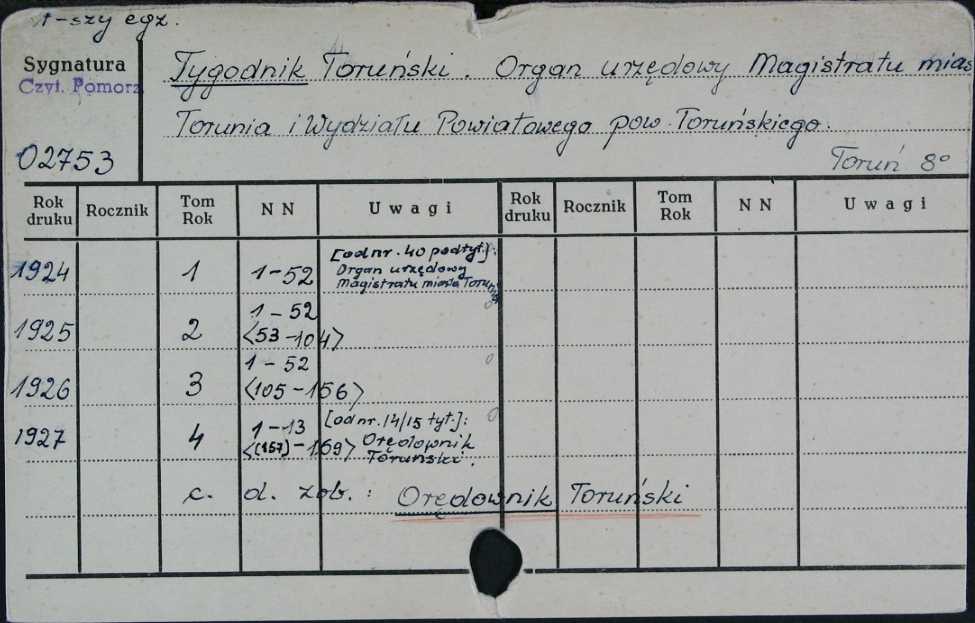 1-szy egz.
Sygnatura
Czyt. Pomorz.
02753
Tygodnik Toruński. Organ urzędowy Magistratu mias
Torunia i Wydziału Powiatowego pow. Toruńskiego.
Toruń 8°
Rok druku Rocznik Tom Rok NN Uwagi Rok druku Rocznik Tom Rok NN Uwagi
1924 1 1-52 [od nr. 40 podtyt.]:
Organ urzędowy
Magistratu miasta Torunia
1925 2 1-52
<53-104>
1926 3 1-52
<105-156>
1927 4 1-13 [od nr. 14/15 tyt.]:
<(157)-169> Orędownik
Toruński.
c. d. zob.: Orędownik Toruński